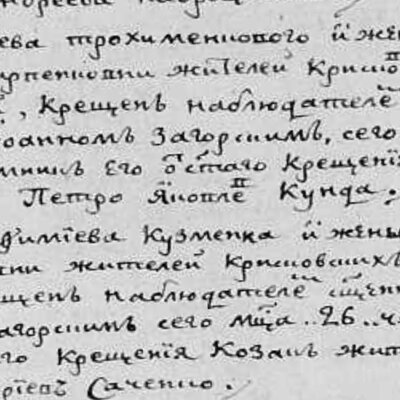 ева трохименкового й жен
арпенковни жителей Криско
, Крещенъ наблюдателе
оанномъ Загорскимъ, сего
мникъ Его ст̃aго Крещенїѧ
Петро Якопле Кунда.
фимїева Кузменка й жены
ни жителей крисковскихъ
щенъ наблюдателе сщ̃ен
агорскимъ сего мца̃ ..26.. ч
го Крещенїя Козакъ жит
рїевъ Саченко.